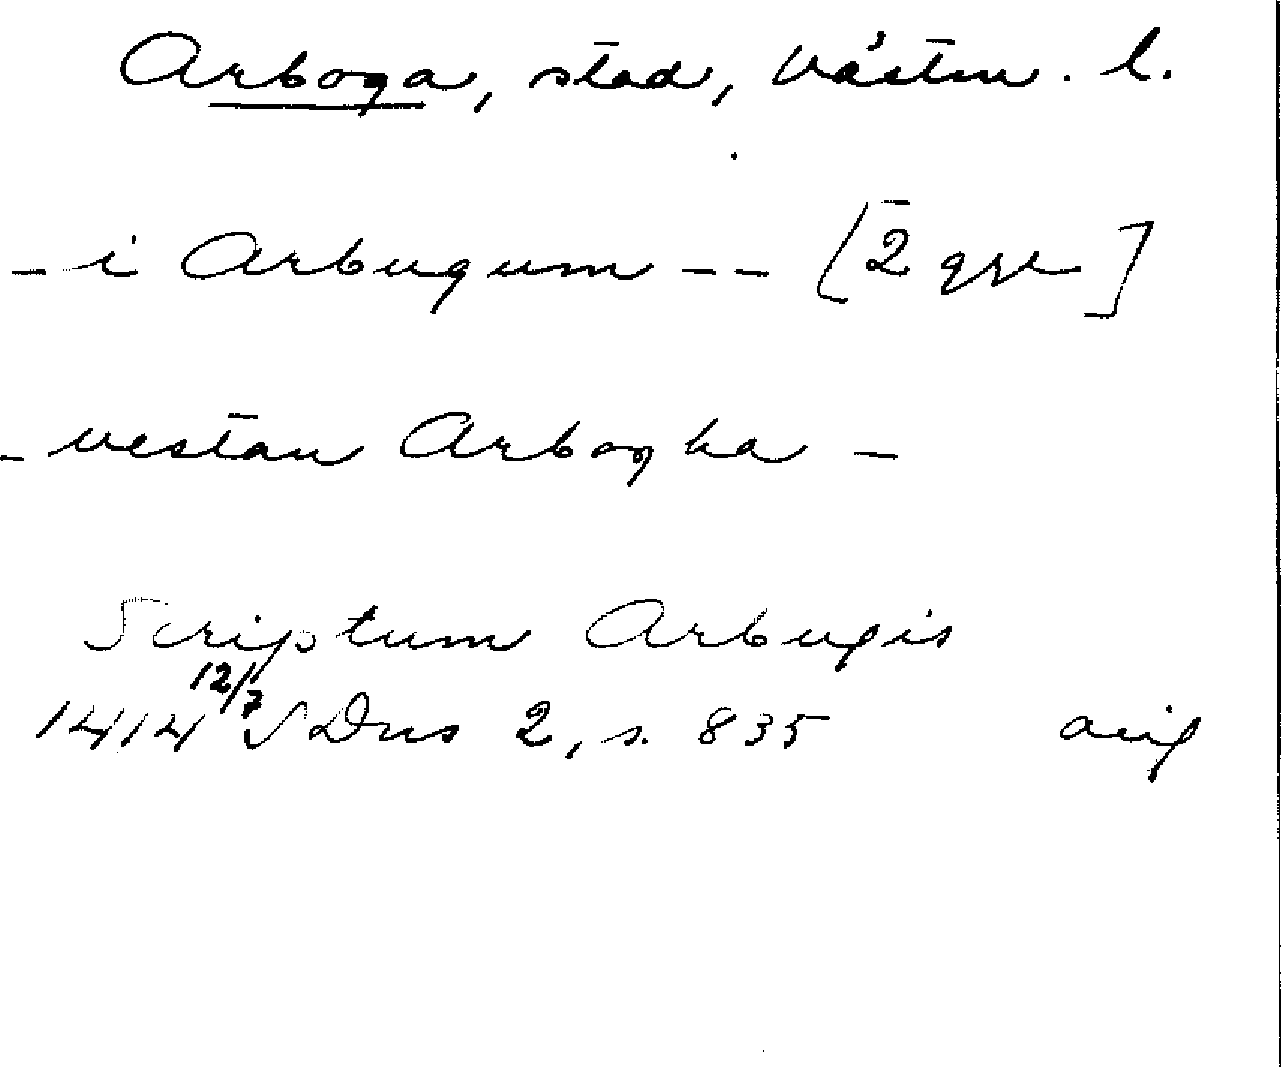 Arboga, stad, Västm. l.
- i Arbugum -- [2 ggr]
- vestan Arbogha -
Scriptum Arbugis
1414 12/7 SDns 2, s. 835 orig